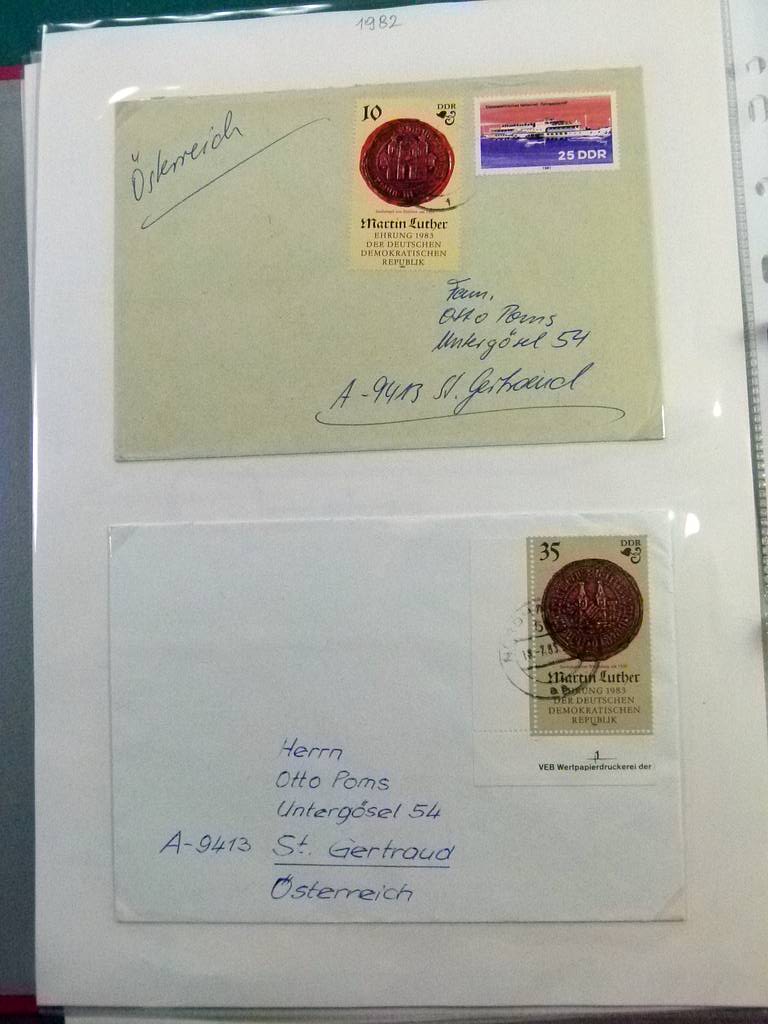 1982
Österreich
10
DDR
25 DDR
1981
Martin Luther
EHRUNG 1983
DER DEUTSCHEN
DEMOKRATISCHEN
REPUBLIK
Fam.
Otto Poms
Untergösel 54
A-9413 St. Gertraud
35
DDR
Martin Luther
EHRUNG 1983
DER DEUTSCHEN
DEMOKRATISCHEN
REPUBLIK
1
VEB Wertpapierdruckerei der
Herrn
Otto Poms
Untergösel 54
A-9413 St. Gertraud
Österreich